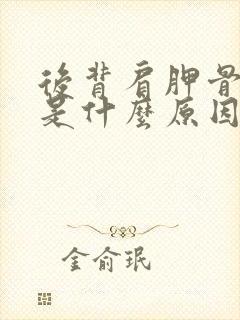 後背肩胛骨
是什麼原因
金俞珉